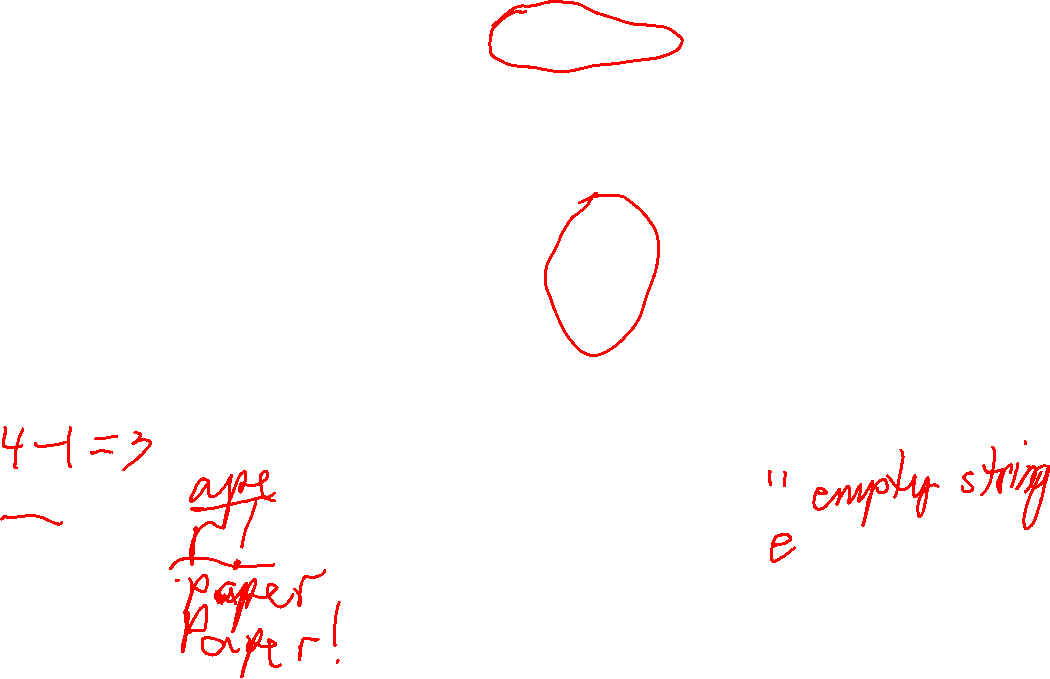 4-1=3
ape
r!
paper
Paper!
" empty string
e